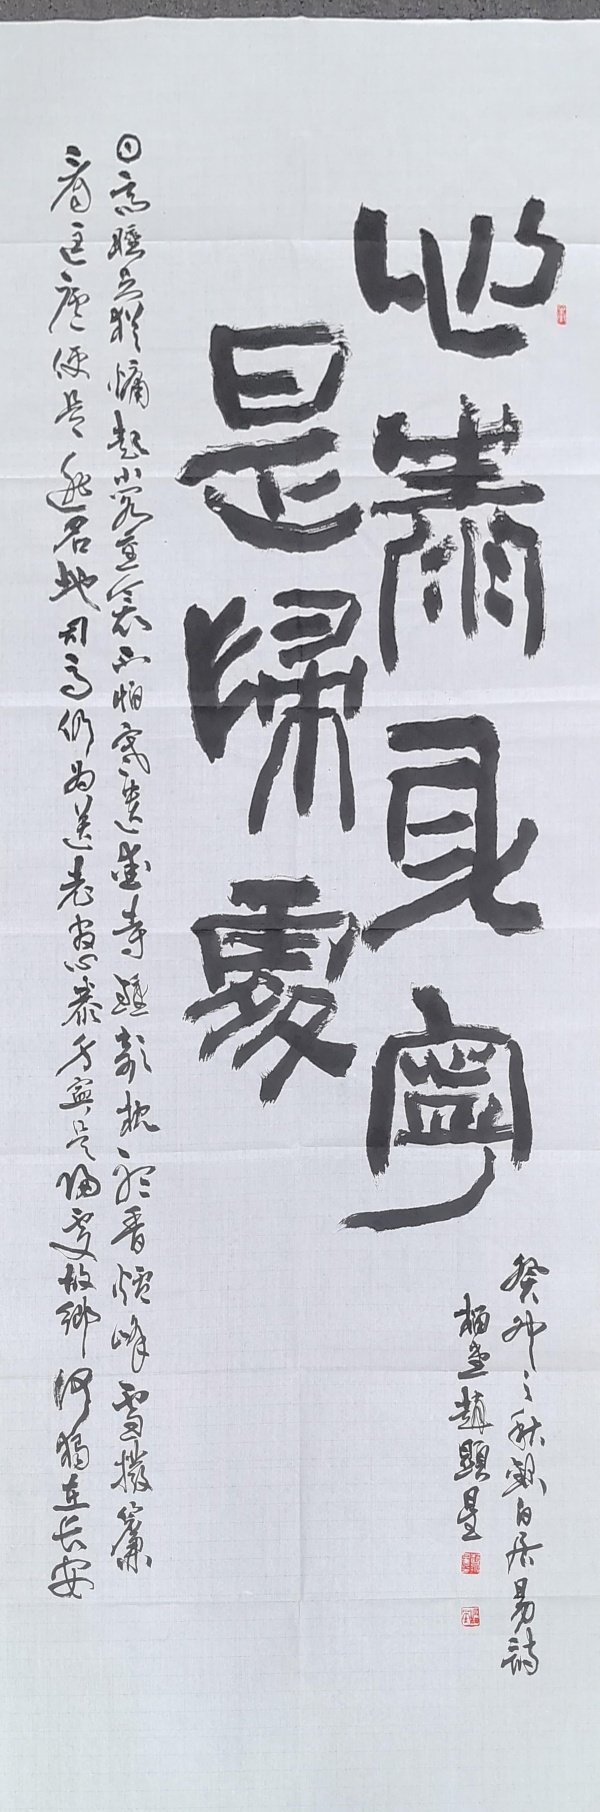 心泰身寧
是歸處
日高睡足猶慵起小閣重衾不怕寒遺愛寺鐘欹枕聽香爐峰雪撥簾
看匡廬便是逃名地司馬仍為送老官心泰身寧是歸處故鄉何獨在長安
癸卯之秋錄白居易詩
栢堂趙顯星